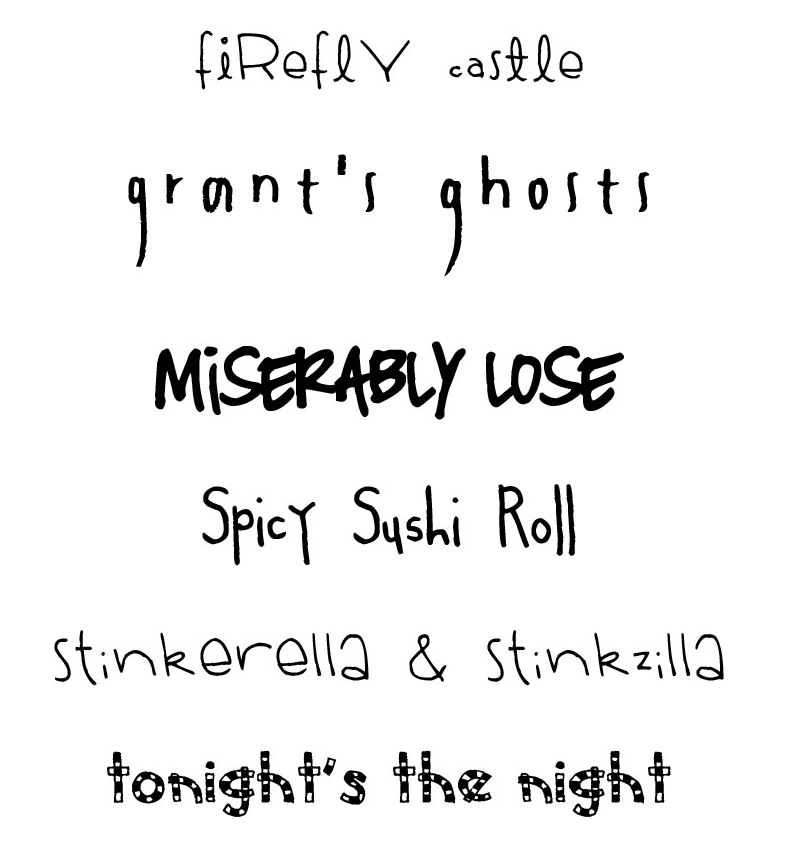 fiRefly castle
grant's ghosts
MiSERABLY LOSE
Spicy Sushi Roll
stinkerella & stinkzilla
tonight's the night